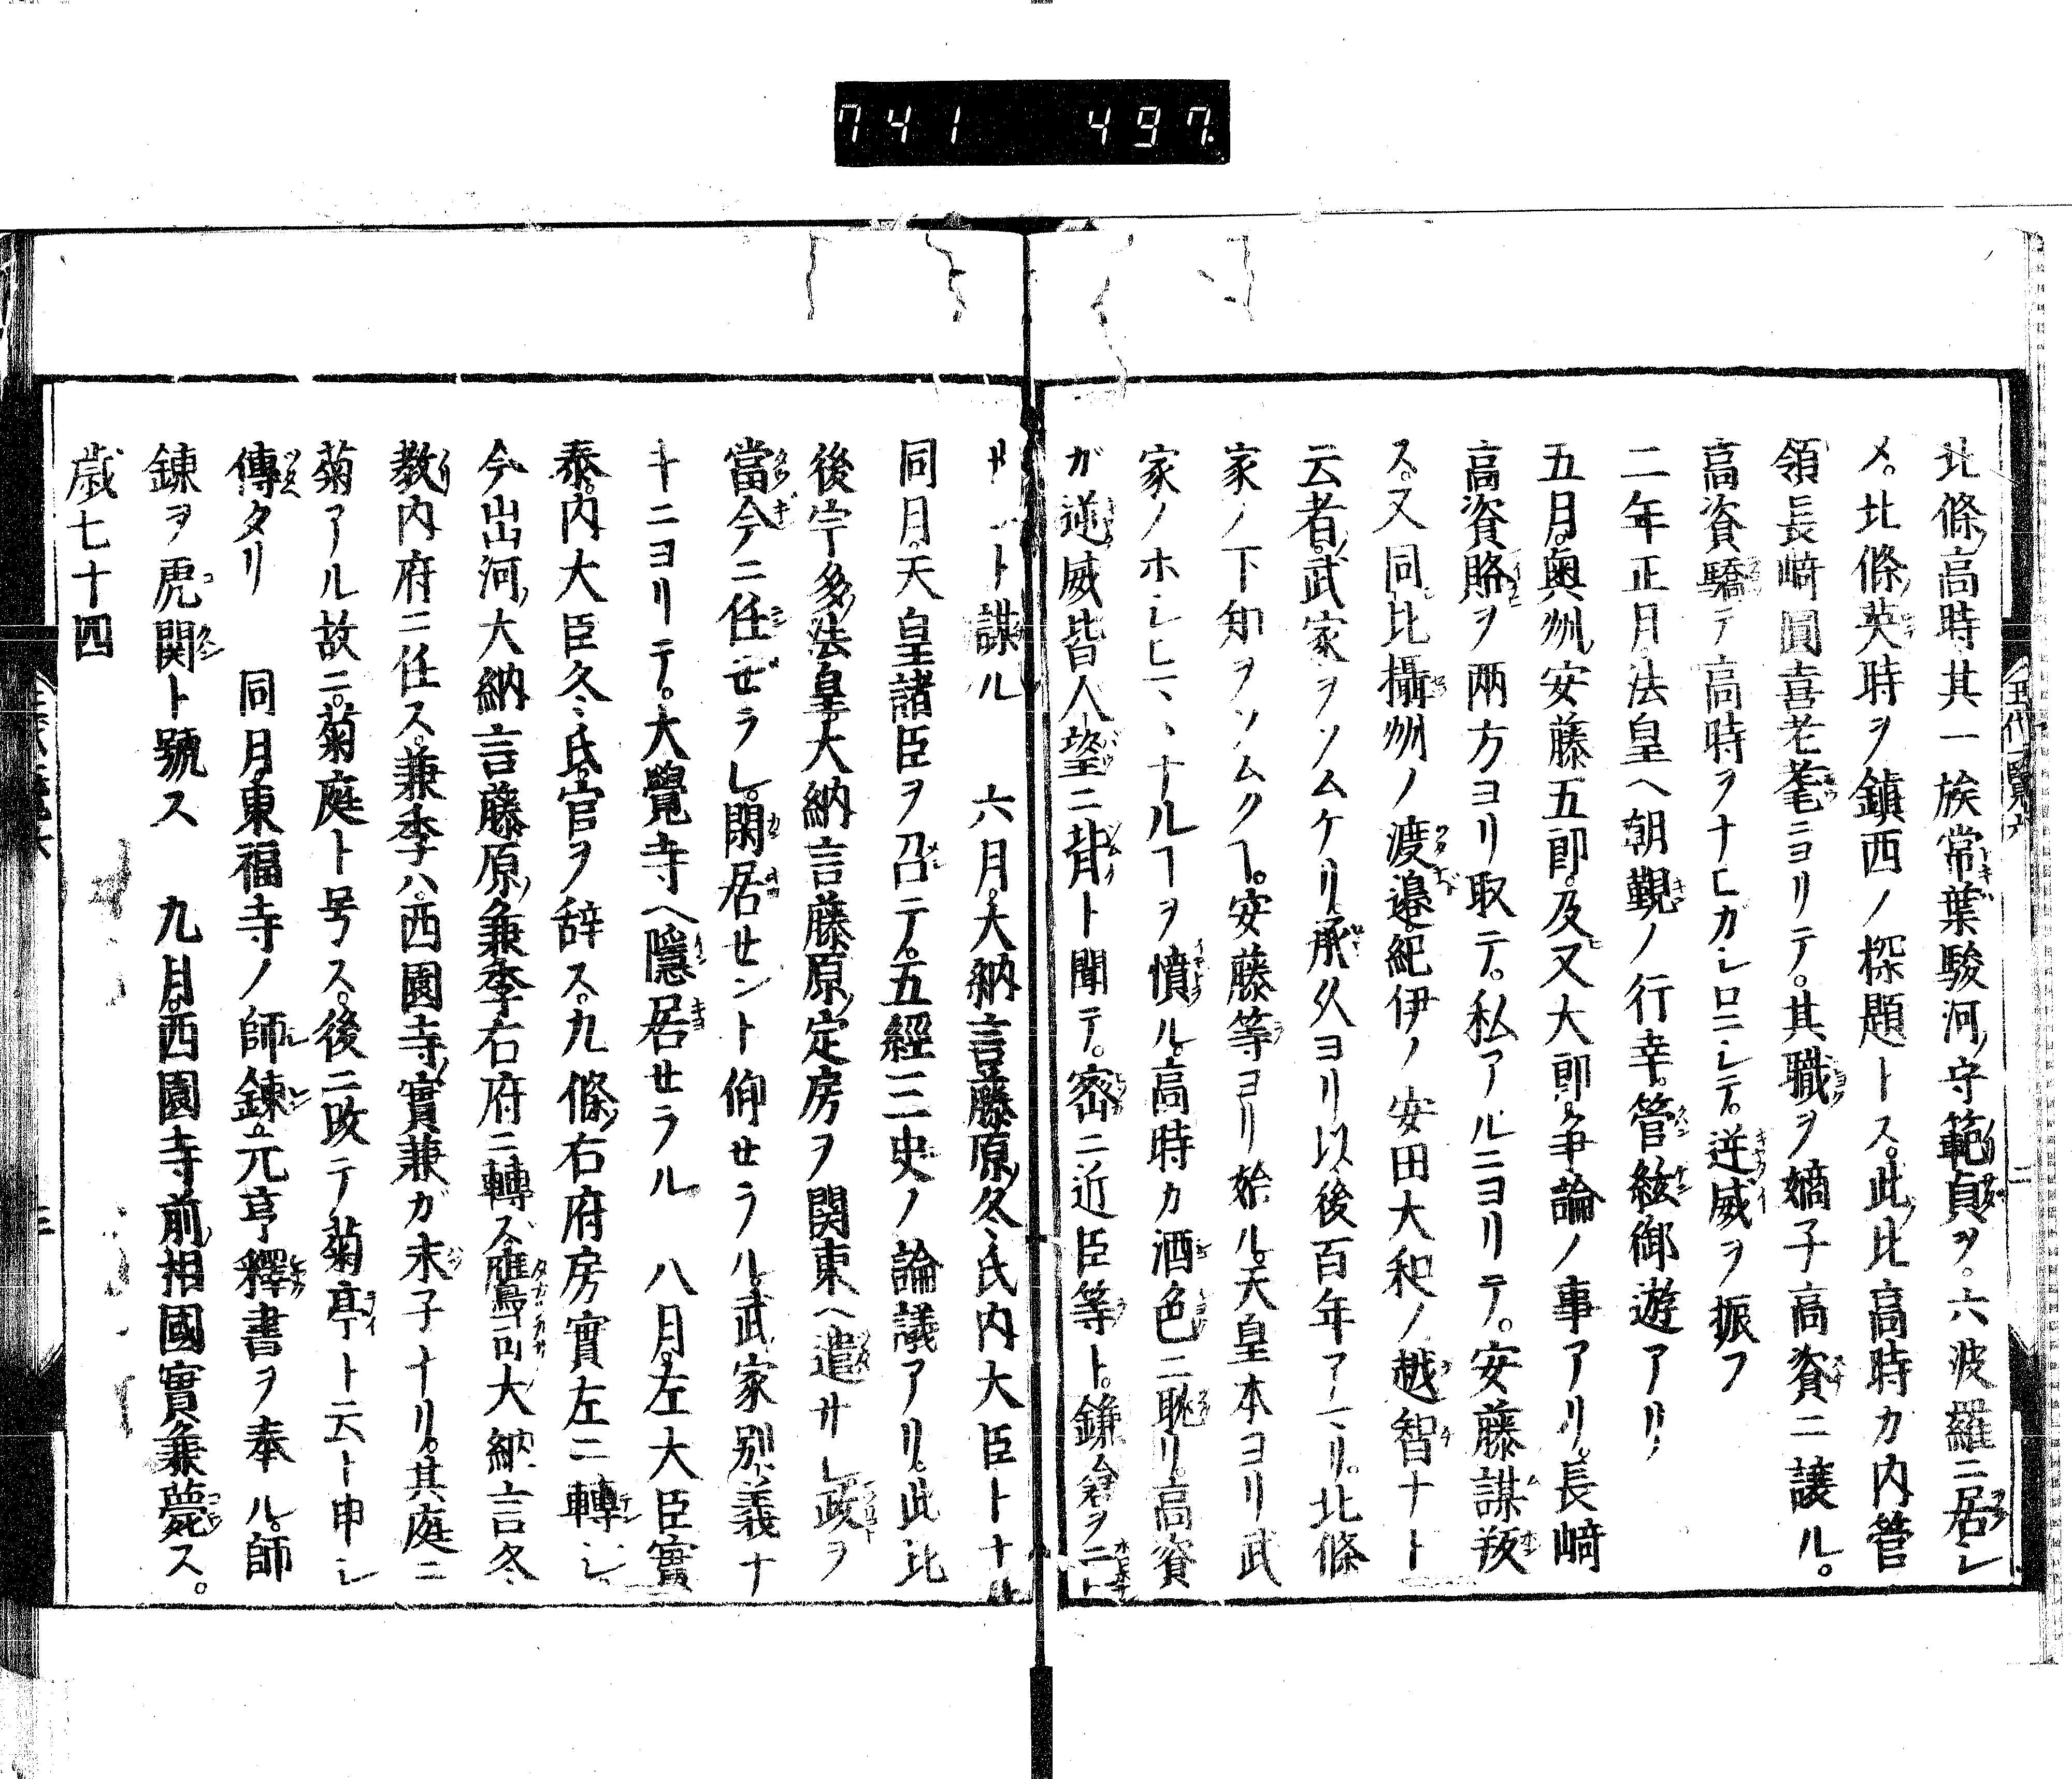 741 497
北條高時其一族常葉駿河守範貞ヲ。六波羅ニ居シ
メ。北條英時ヲ鎮西ノ探題トス。此比高時カ内管
領長﨑圓喜老耄ニヨリテ。其職ヲ嫡子高資ニ譲ル。
高資驕テ高時ヲナヒカシロニシテ。逆威ヲ振フ
二年正月法皇へ朝覲ノ行幸。管絃御遊アリ
五月。奥州安藤五郎。及又大郎争論ノ事アリ。長﨑
高資賂ヲ両方ヨリ取テ。私アルニヨリテ。安藤謀叛
ス。又同比攝州ノ渡邉。紀伊ノ安田大和ノ越智ナト
云者。武家ヲソムケリ。承久ヨリ以後百年アマリ。北條
家ノ下知ヲソムクヿ。安藤等ヨリ始ル。天皇本ヨリ武
家ノホシヒマヽナルヿヲ憤ル。高時カ酒色ニ耽リ。高資
ガ逆威皆人望ニ背ト聞テ。密ニ近臣等ト。鎌倉ヲ亡
サント謀ル 六月。大納言藤原冬氏内大臣トナル
同月。天皇諸臣ヲ召テ。五經三史ノ論議アリ。此比
後宇多法皇。大納言藤原定房ヲ関東へ遣サレ政ヲ
當今ニ任ゼラレ。閑居セント仰セラル。武家別義ナ
キニヨリテ。大覺寺へ隠居セラル 八月。左大臣實
泰。内大臣冬氏官ヲ辞ス。九條右府房實左ニ轉シ。
今出河大納言藤原兼季右府ニ轉ズ。鷹司大納言冬
教内府ニ任ス。兼季ハ。西園寺實兼ガ末子ナリ。其庭ニ
菊アル故ニ。菊庭ト号ス。後ニ改テ菊亭ト云ト申シ
傳タリ 同月。東福寺ノ師錬。元亨釋書ヲ奉ル。師
錬ヲ虎関ト號ス 九月。西園寺前相國實兼薨ス。
歳七十四